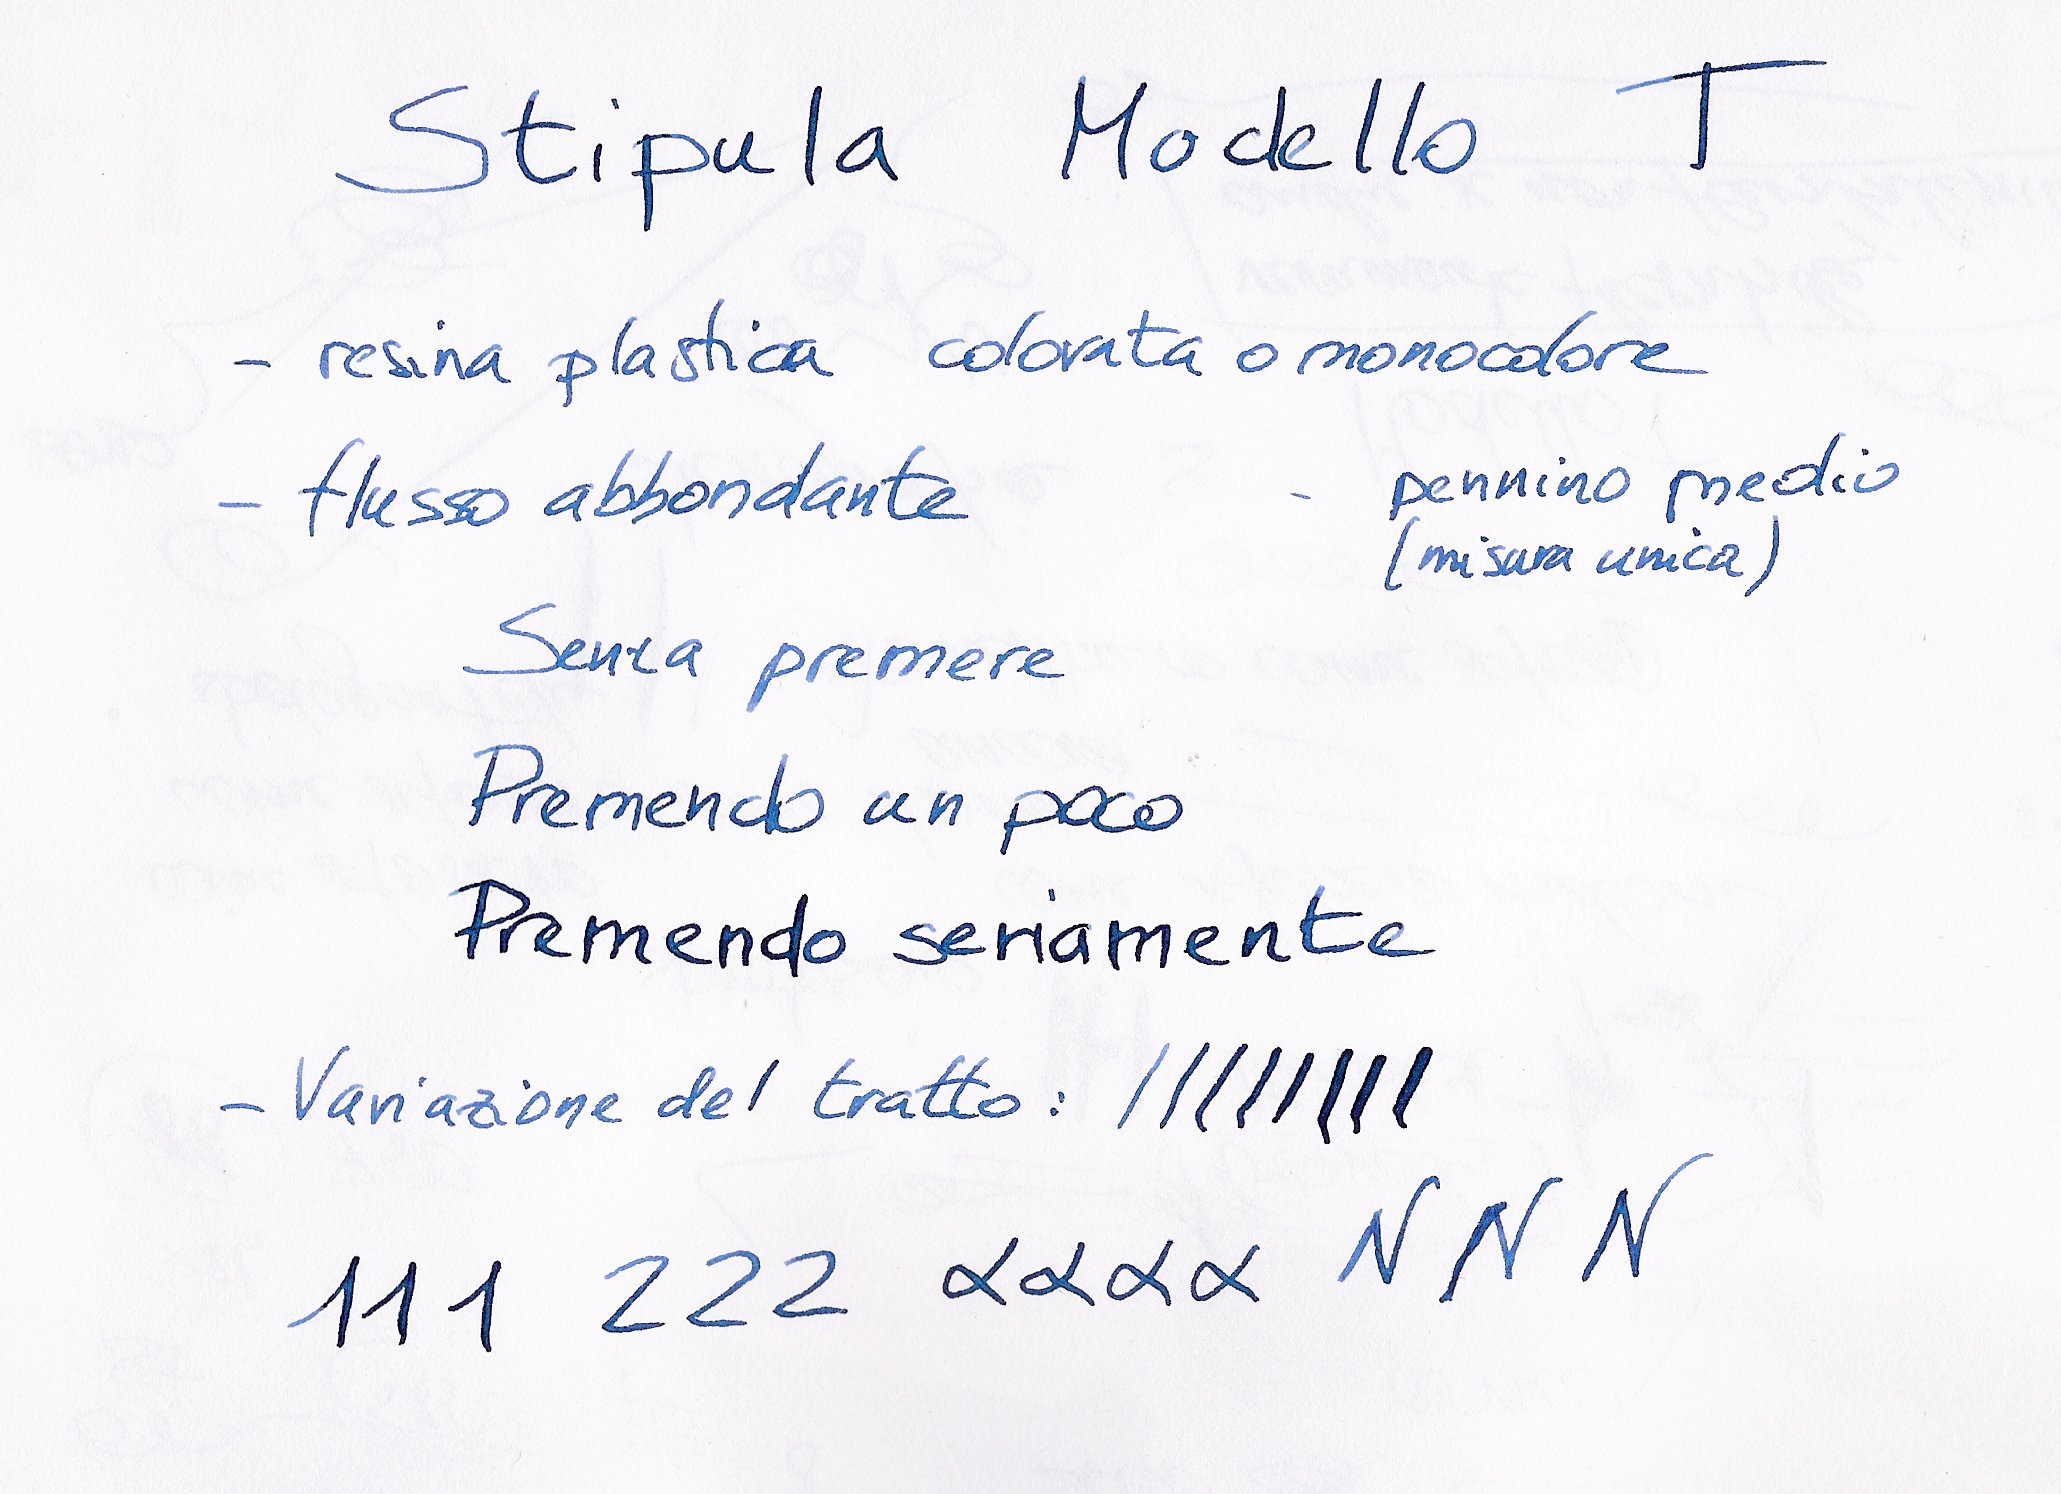 Stipula Modello T
- resina plastica colorata o monocolore
- flusso abbondante - pennino medio
(misura unica)
Senza premere
Premendo un poco
Premendo seriamente
- Variazione del tratto: ////////
111 222 αααα N N N